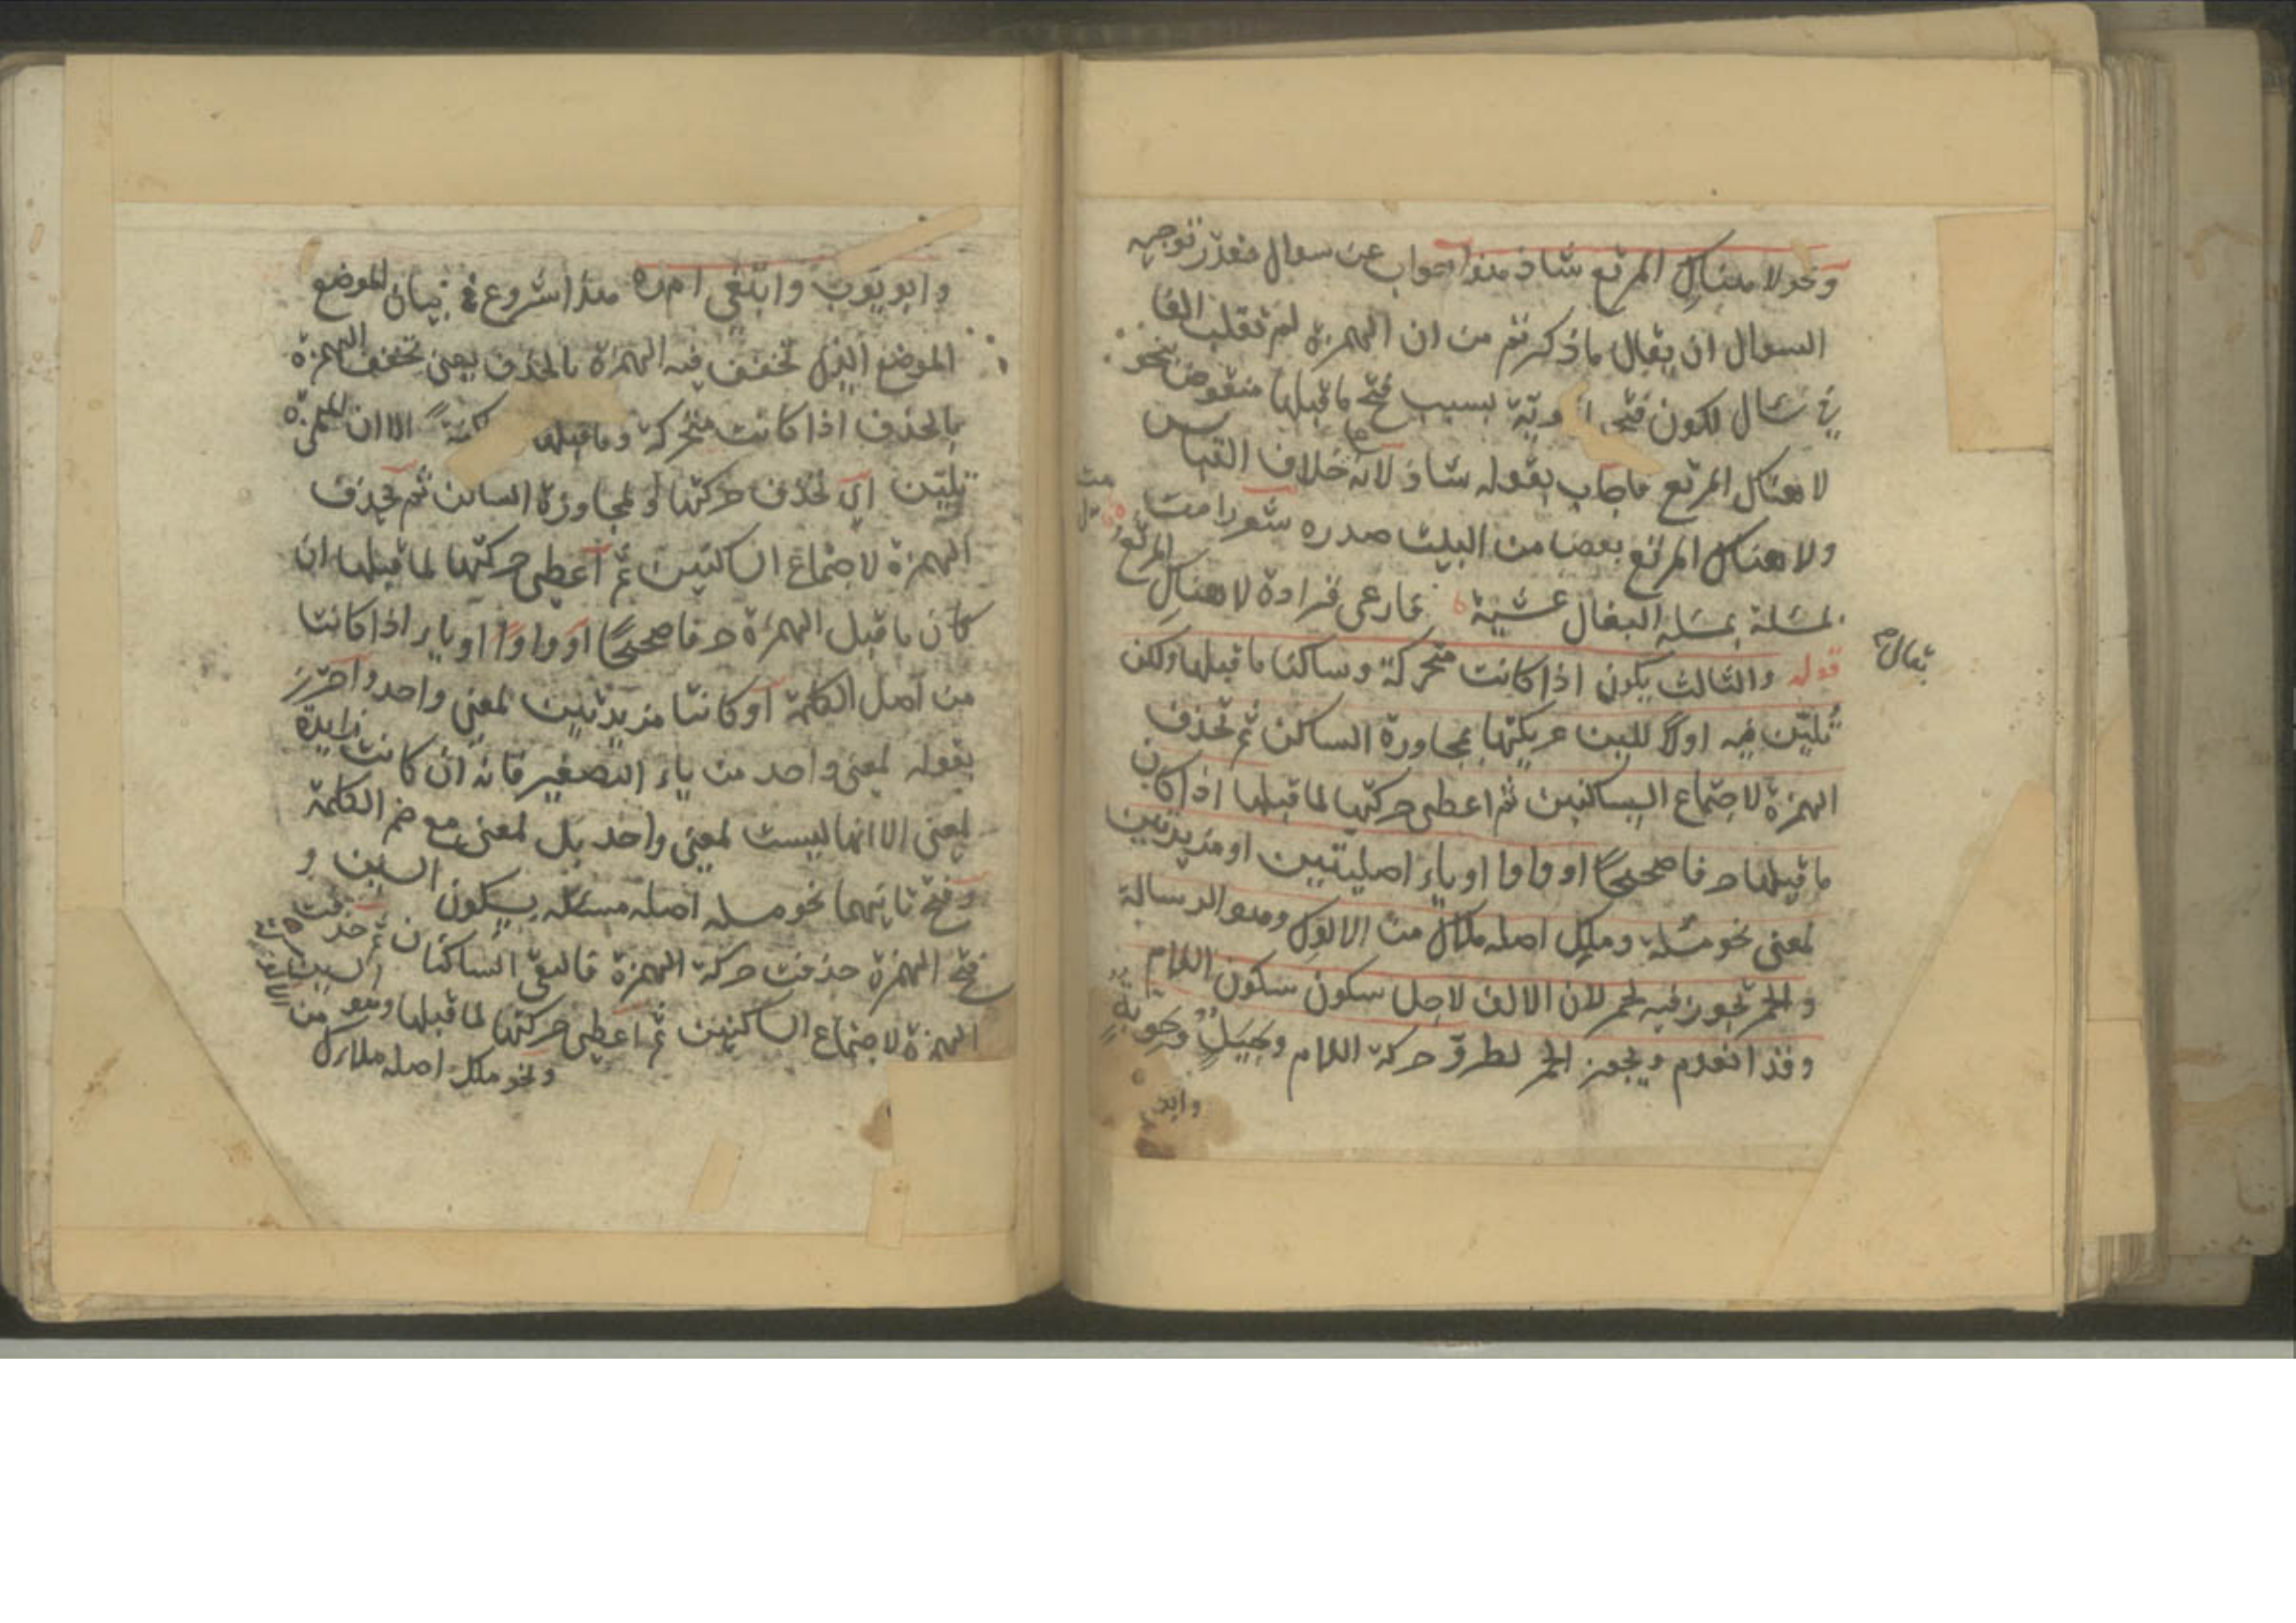 ونحو لا هناك المرتع شاذ هذا جواب عن سوال مقدر توجيه
السوال ان يقال ما ذكرتم من ان الهمزة لم تقلب الفا
في سال لكون فتحة بسبب فتح ما قبلها منقوض بنحو
لا هناك المرتع فاجاب بقوله شاذ لانه خلاف القياس
ولا هناك المرتع بعضا من البيت صدره شعر راحت
بمسلمة البغال عشية فارعى فزارة لا هناك المرتع
قوله والثالث يكون اذا كانت متحركة وساكنا ما قبلها ولكن
تُليّن فيه اولا للين عريكتها بمجاورة الساكن ثم تحذف
الهمزة لاجتماع الساكنين ثم اعطى حركتها لما قبلها اذا كان
ما قبلها حرفا صحيحًا او واوا او ياء اصليتين او مزيدتين
لمعنى نحو مسلة وملك اصله ملاك من الالوك وهو الرسالة
والحمر تجوز فيه لحمر لان الالف لاجل سكون سكون اللام
وقد انعدم ويجوز الحمر لطروّ حركة اللام وجَيَلٌ وحَوَبَةٌ
وابو
يقال
وابو يّوب وابتغي امره هذا شروع في بيان الموضع
الموضع الذي تخفف فيه الهمزة بالحذف يعنى تخفف الهمزة
بالحذف اذا كانت متحركة وما قبلها الا ان الهمزة
تليّن اي تحذف حركتها لمجاورة الساكن ثم تحذف
الهمزة لاجتماع الساكنين ثم اعطى حركتها لما قبلها ان
كان ما قبل الهمزة حرفا صحيحًا او واوًا او ياء اذا كانت
من اصل الكلمة او كانتا مزيدتين لمعنى واحد واحترز
بقوله لمعنى واحد من ياء التصغير فانه ان كانت زايدة
لمعنى الا انها ليست لمعنى واحد بل لمعنى مع ضم الكلمة
وفتح ثانيهما نحو مسله اصله مسئله بسكون السين و
فتح الهمزة حذفت حركة الهمزة فالتقى الساكنان ثم حذفت
الهمزة لاجتماع الساكنين ثم اعطى حركتها لما قبلها وهو السين
ونحو ملك اصله ملاك من